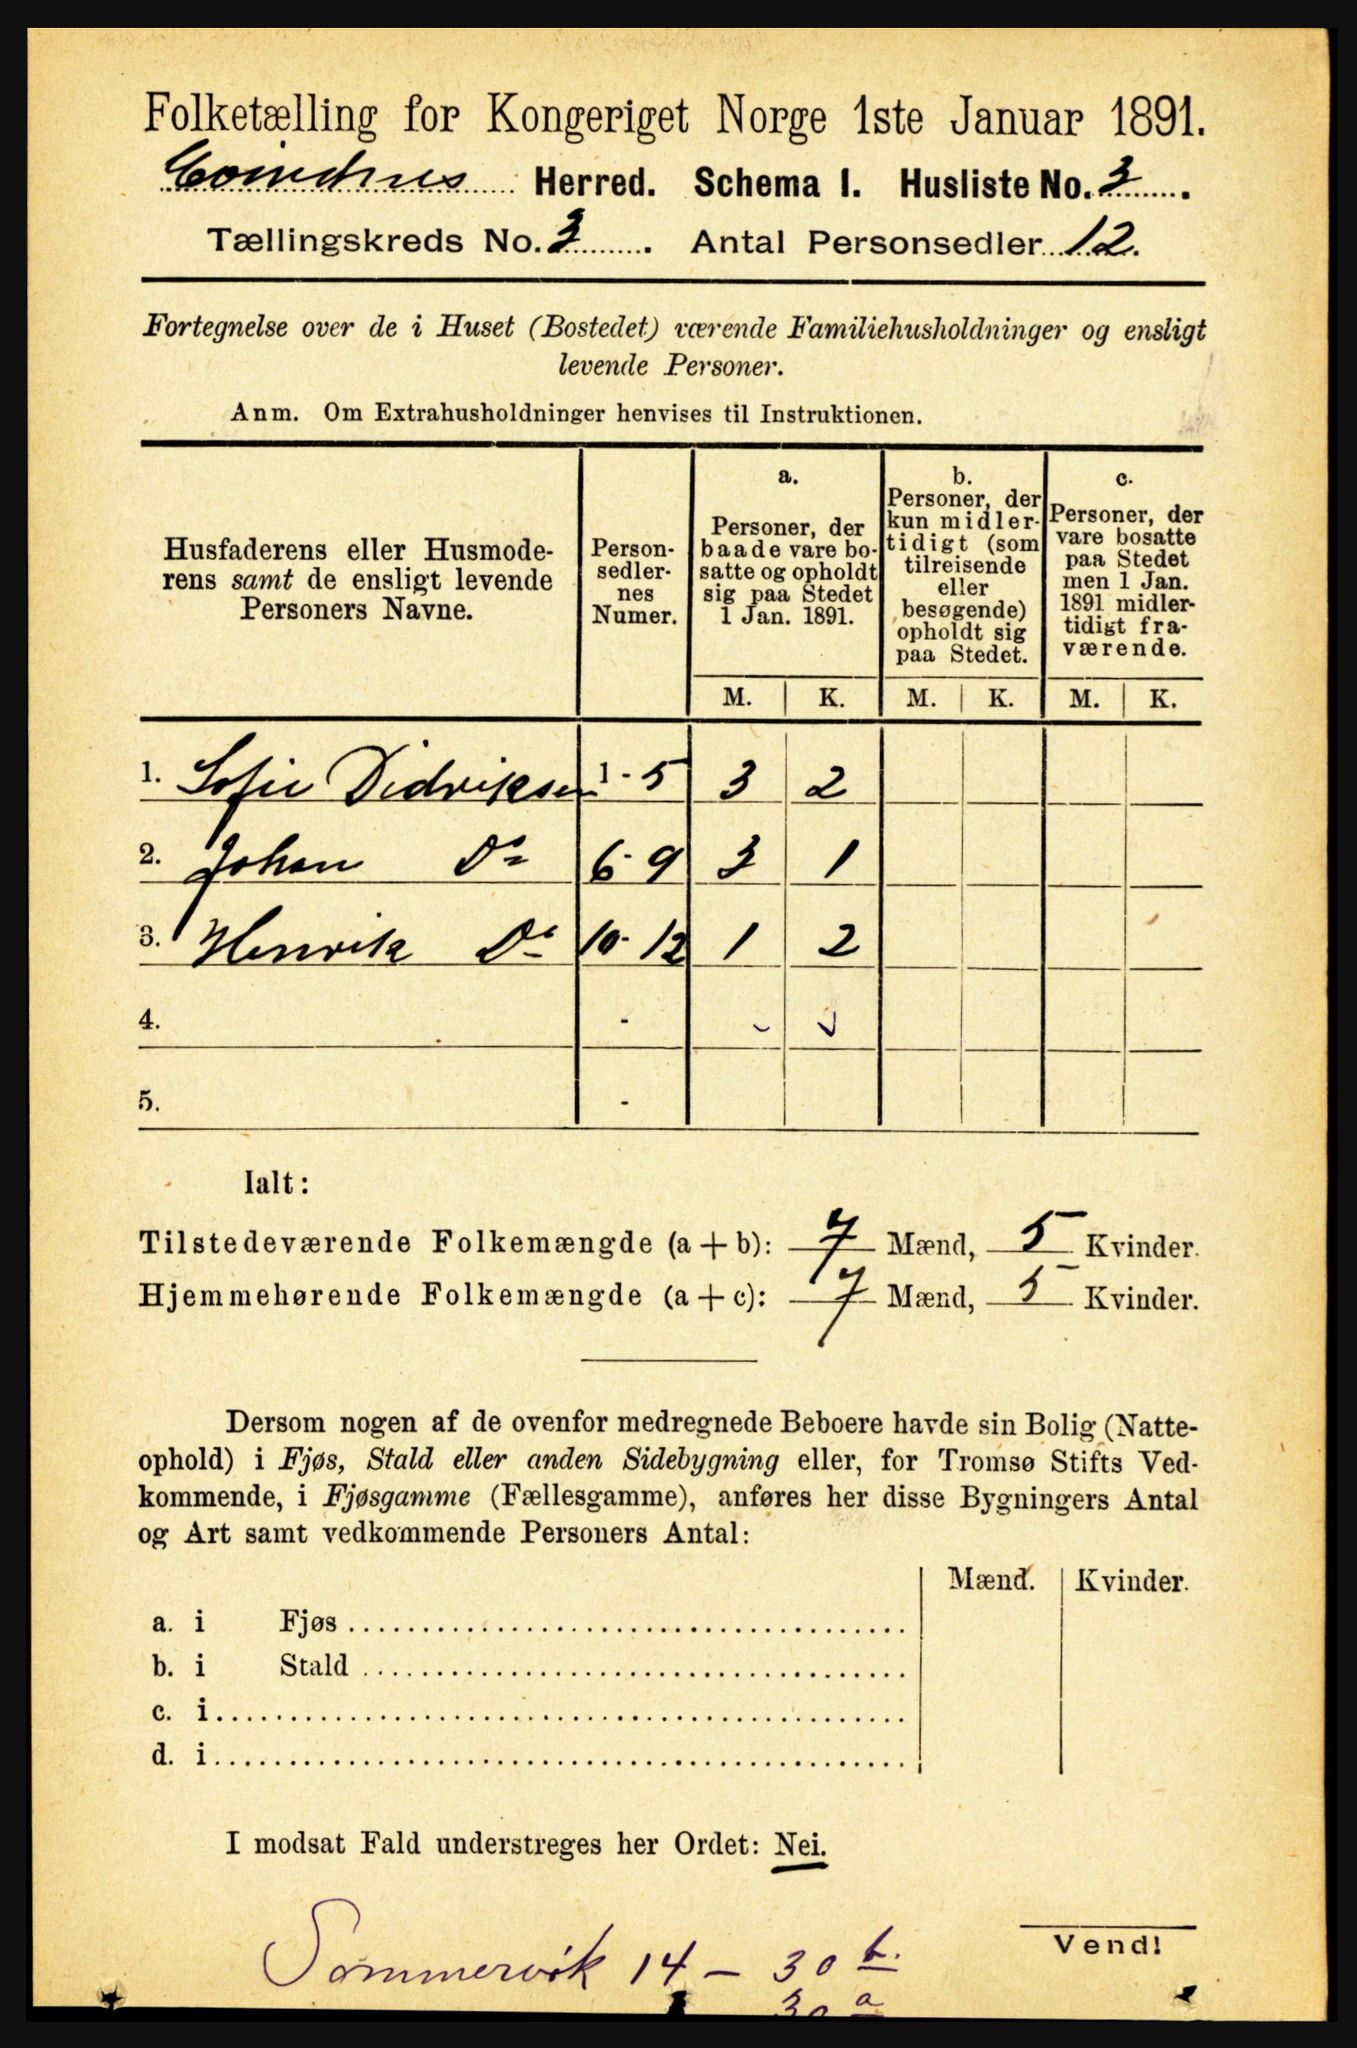 Folketælling for Kongeriget Norge 1ste Januar 1891.
Herred. Schema I. Husliste No. 3.
Tællingskreds No. 3. Antal Personsedler 12.
Fortegnelse over de i Huset (Bostedet) værende Familiehusholdninger og ensligt
levende Personer.
Anm. Om Extrahusholdninger henvises til Instruktionen.
Husfaderens eller Husmode-
rens samt de ensligt levende
Personers Navne.
Person-
sedler-
nes
Numer.
a.
Personer, der
baade vare bo-
satte og opholdt
sig paa Stedet
1 Jan. 1891.
b.
Personer, der
kun midler-
tidigt (som
tilreisende
eller
besøgende)
opholdt sig
paa Stedet.
c.
Personer, der
vare bosatte
paa Stedet
men 1 Jan.
1891 midler-
tidigt fra-
værende.
M. K. M. K. M. K.
1. Sofie Didriksen 1-5 3 2
2. Johan Do 6-9 3 1
3. Henrik Do 10-12 1 2
4. -
5. -
Ialt:
Tilstedeværende Folkemængde (a + b): 7 Mænd, 5 Kvinder.
Hjemmehørende Folkemængde (a + c): 7 Mænd, 5 Kvinder.
Dersom nogen af de ovenfor medregnede Beboere havde sin Bolig (Natte-
ophold) i Fjøs, Stald eller anden Sidebygning eller, for Tromsø Stifts Ved-
kommende, i Fjøsgamme (Fællesgamme), anføres her disse Bygningers Antal
og Art samt vedkommende Personers Antal:
Mænd. Kvinder.
a. i Fjøs
b. i Stald
c. i
d. i
I modsat Fald understreges her Ordet: Nei.
Vend!
Sommervik 14 - 30 b.
30 a